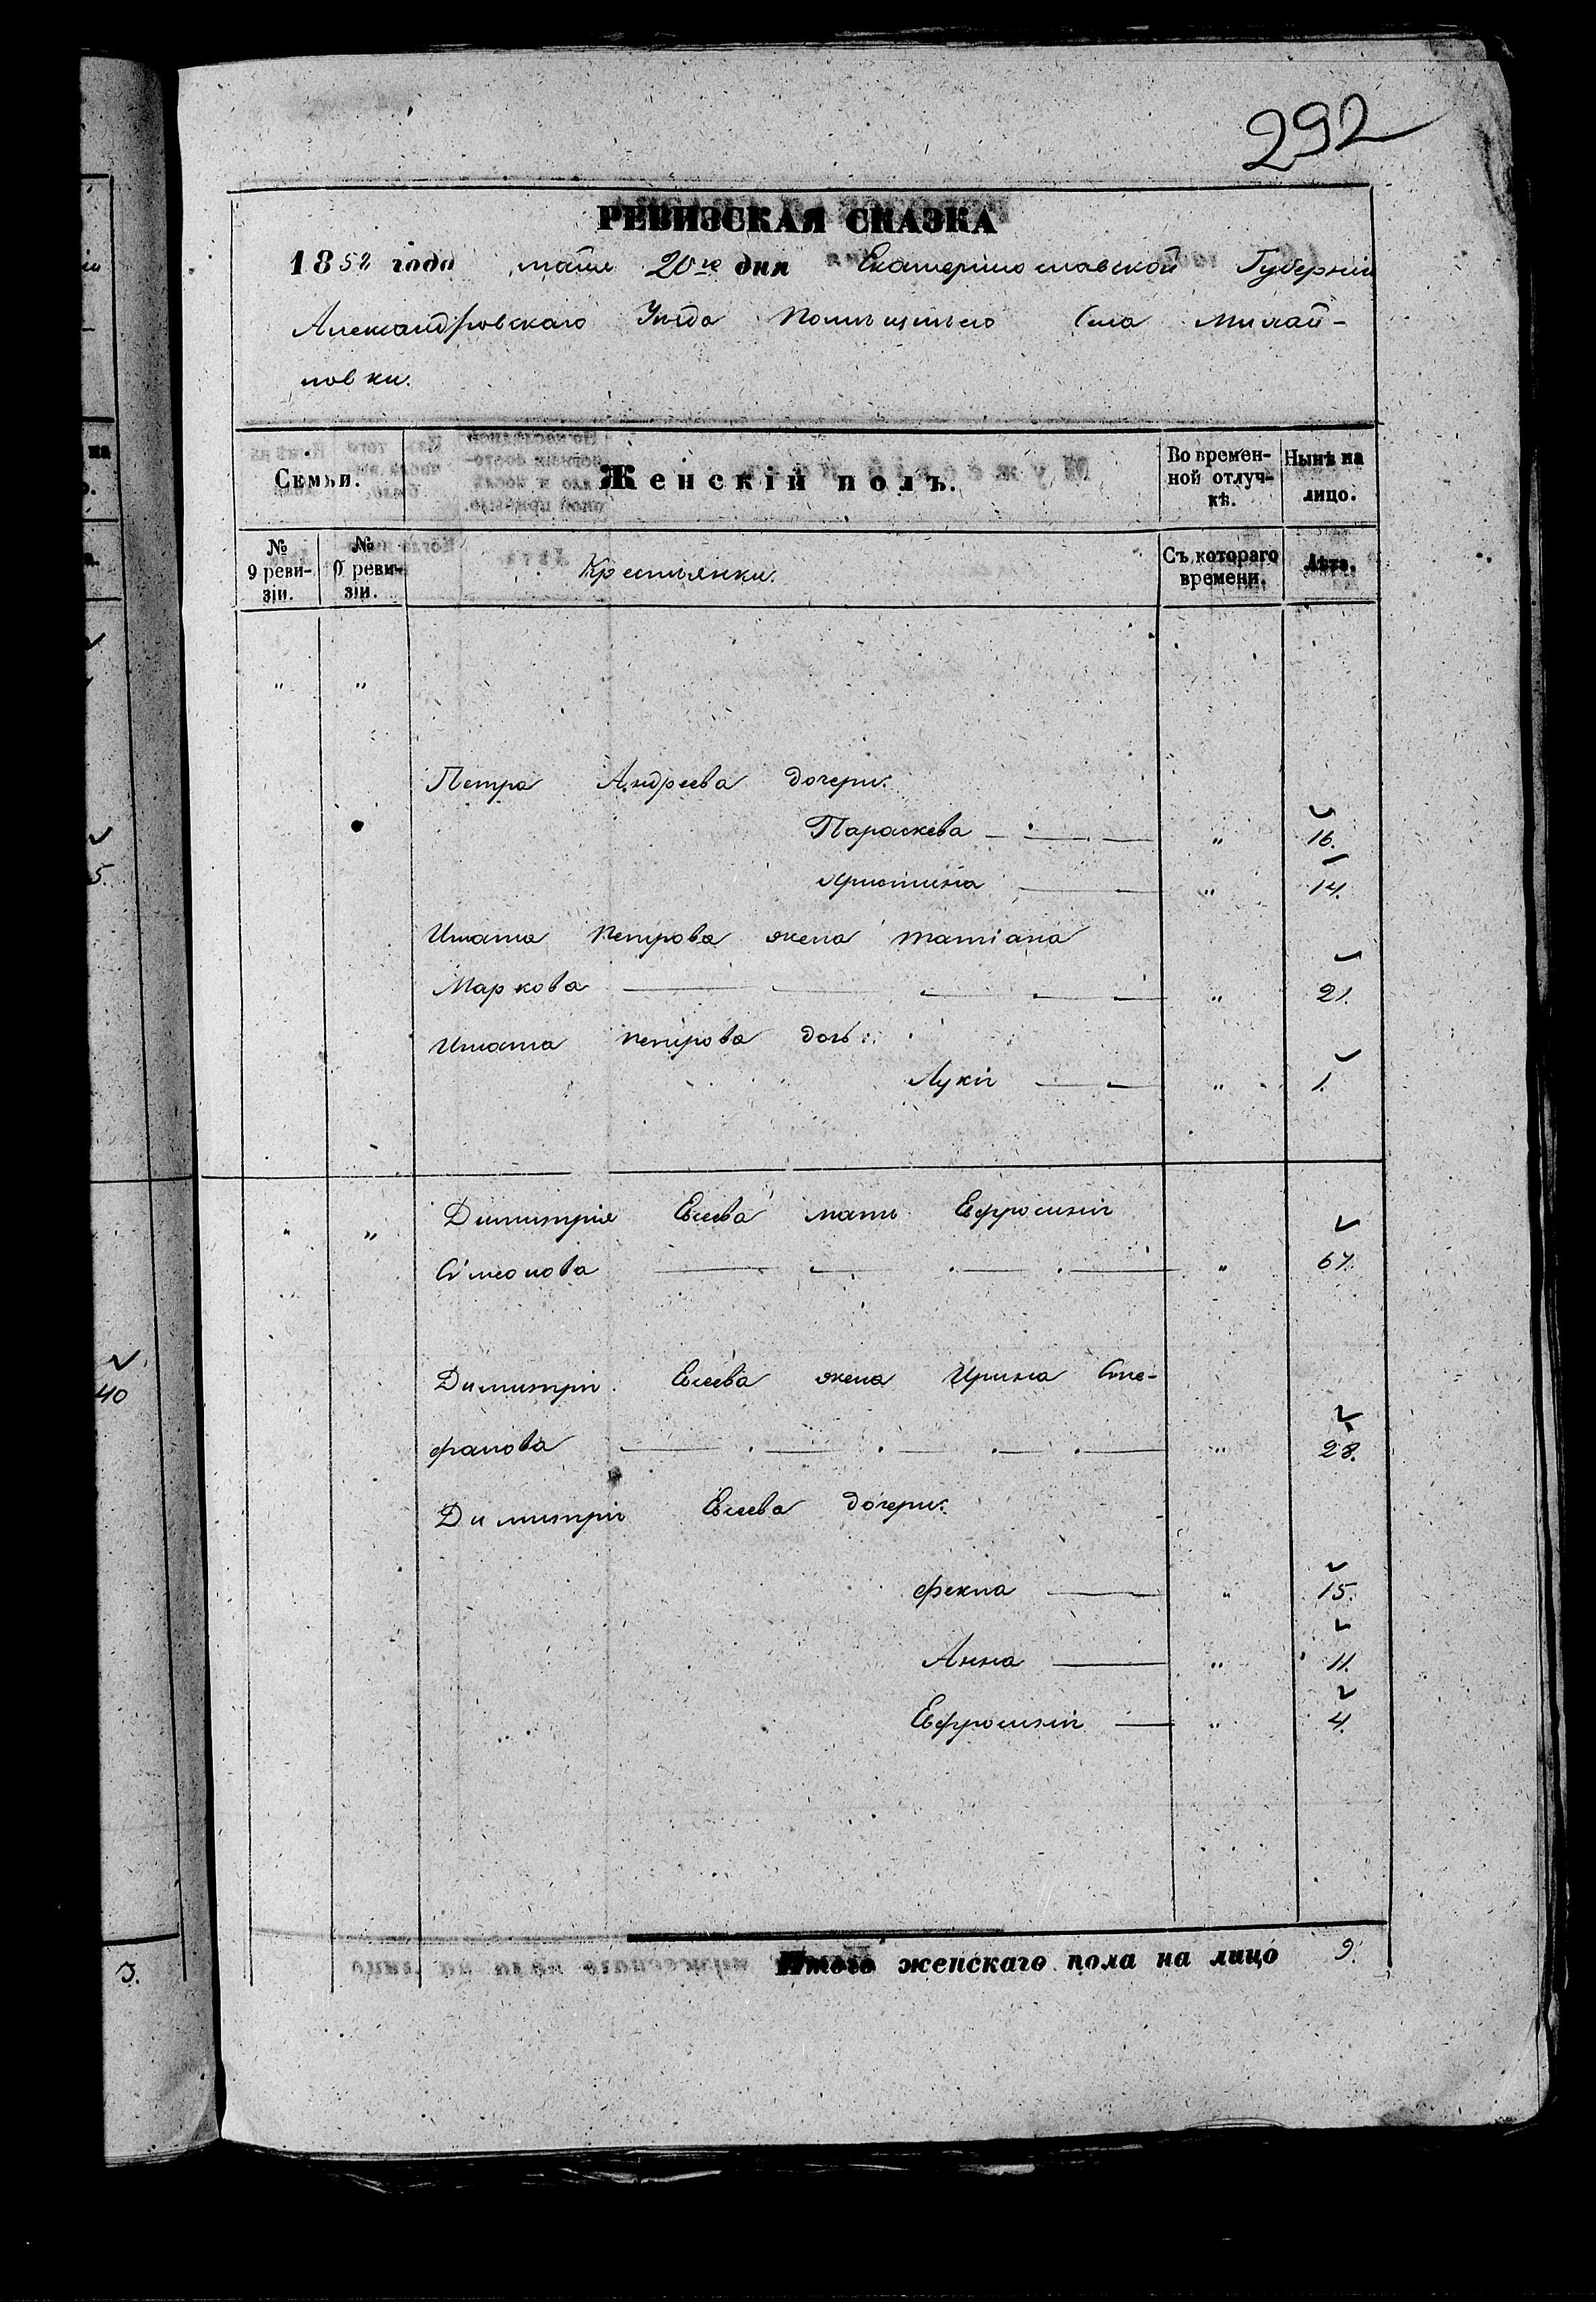 292
РЕВИЗСКАЯ СКАЗКА
1858 года маія 20го дня Екатеринославской Губерніи
Александровскаго Уѣзда Села Михай-
ловки.
Семьи.
Женскій полъ.
Во времен-
ной отлуч-
кѣ.
Нынѣ на
лицо.
№
9 реви-
зіи.
№
0 реви-
зіи.
Крестьянки.
Съ котораго
времени.
Лѣта.
" "
Петра Андреева дочери:
Параскева " 16.
Христина " 14.
Игната Петрова жена Татіана
Маркова " 21.
Игната Петрова дочь:
Лукія " 1.
" " Димитрія Евсева мать Ефросинія
Симеонова " 67.
Димитрія Евсева жена Ирина Сте-
фанова " 28.
Димитрія Евсева дочери:
Фекла " 15.
Анна " 11.
Евфросинія " 4.
Итого женскаго пола на лицо 9.